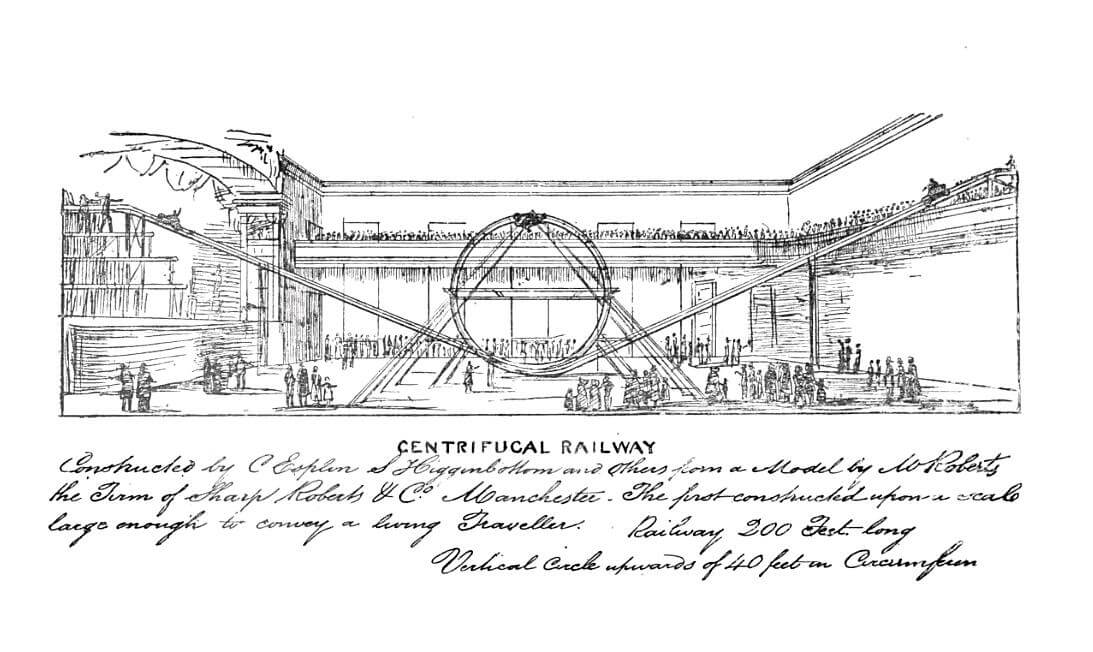 CENTRIFUGAL RAILWAY
Constructed by C Esplin S Higginbottom and others from a Model by Mr Roberts
the Firm of Sharp Roberts & Co Manchester. The first constructed upon a scale
large enough to convey a living Traveller.
Railway 200 Feet long
Vertical Circle upwards of 40 feet in Circumfeun